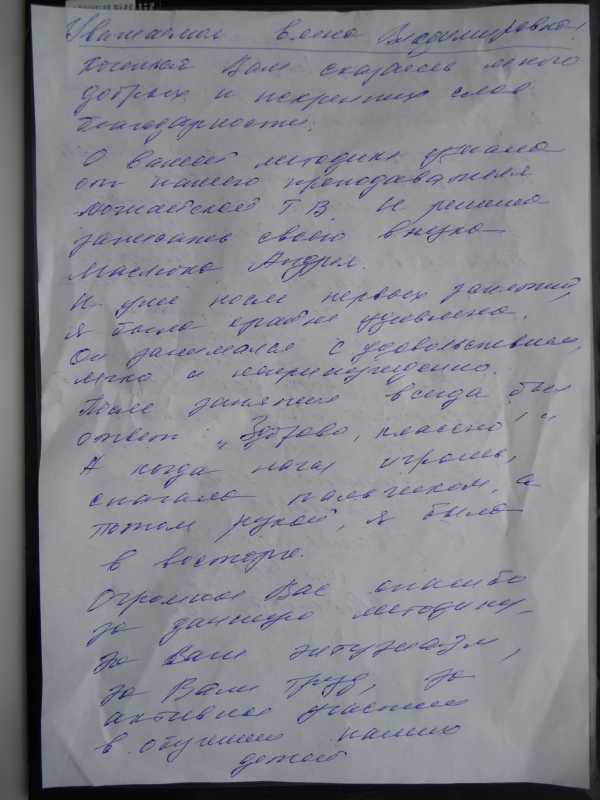 Уважаемая Елена Владимировна!
Хочется Вам сказать много
добрых и искренних слов
благодарности.
О Вашей методике узнала
от нашего преподавателя
Можайской Т.В. И решила
записать своего внука
Андрея.
И уже после первых занятий,
я была крайне удивлена.
Он занимался с удовольствием,
легко и непринужденно.
После занятия всегда был
ответ: „Здорово, классно!"
А когда начал играть,
сначала пальчиком, а
потом рукой, я была
в восторге.
Огромное Вас спасибо
за данную методику,
за Ваш энтузиазм,
за Ваш труд, за
активное участие
в обучении наших
детей